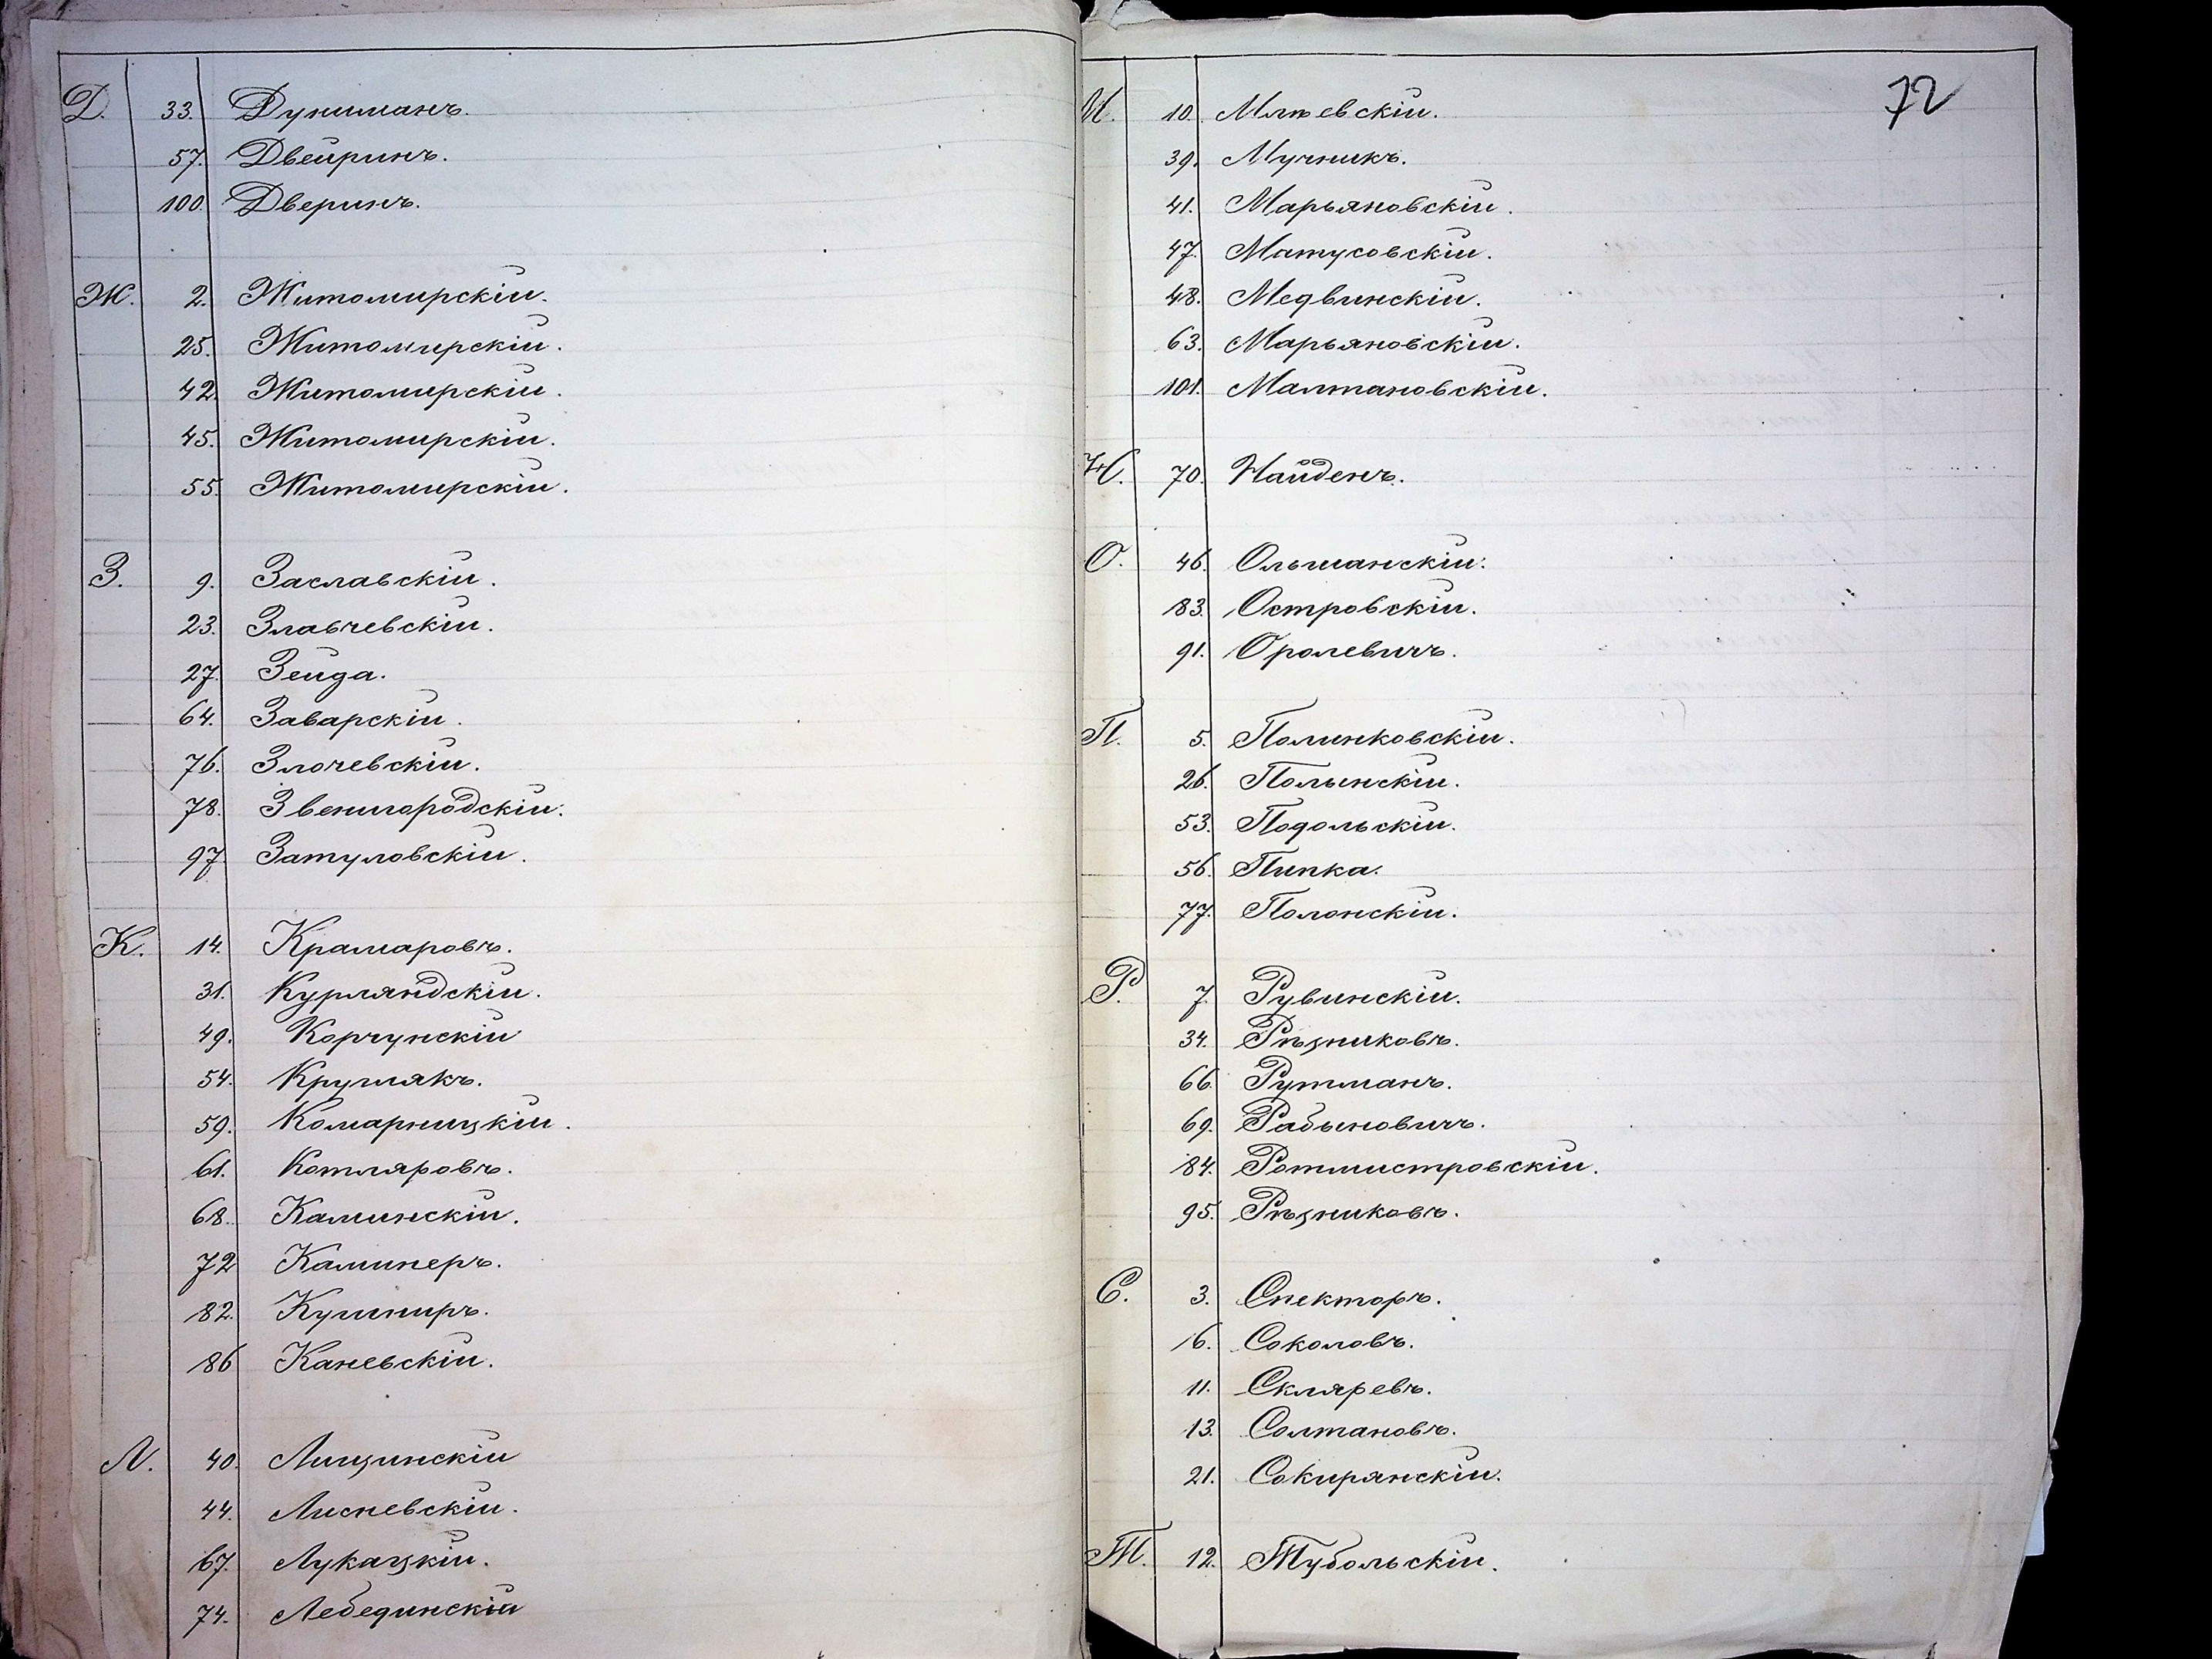 Д. 33. Дукиманъ.
57. Двейринъ.
100. Дверинъ.
Ж. 2. Житомирскій.
25. Житомирскій.
42. Житомирскій.
45. Житомирскій.
55. Житомирскій.
З. 9. Заславскій.
23. Злавчевскій.
27. Зейда.
64. Заварскій.
76. Злочевскій.
78. Звенигородскій.
97. Затуловскій.
К. 14. Крамаровъ.
31. Курляндскій.
49. Корчунскій
54. Круглякъ.
59. Комарницкій.
61. Котляровъ.
68. Каминскій.
72 Каминеръ.
82. Кушниръ.
86 Каневскій.
Л. 40. Лищинскій
44. Лисневскій.
67. Лукацкій.
74. Лебединскій
72
М. 10. Млѣевскій.
39. Мучникъ.
41. Марьяновскій.
47. Матусовскій.
48. Медвинскій.
63. Марьяновскій.
101. Малтановскій.
Н. 70. Найденъ.
О. 46. Ольшанскій.
83. Островскій.
91. Оролевичъ.
П. 5. Полинковскій.
26. Полынскій.
53. Подольскій.
56. Пипка.
77. Полонскій.
Р. 7. Рувинскій.
34. Рѣзниковъ.
66. Рутманъ.
69. Рабыновичъ.
84. Ротмистровскій.
95. Рѣзниковъ.
С. 3. Спекторъ.
6. Соколовъ.
11. Скляревъ.
13. Солтановъ.
21. Сокирянскій.
Т. 12. Тубольскій.